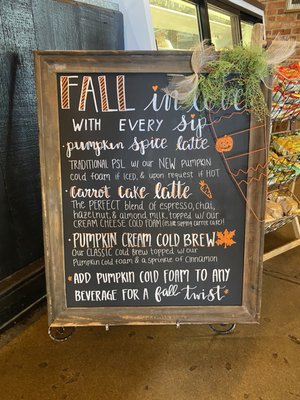 FALL in love
WITH EVERY Sip
• pumpkin spice latte
TRADITIONAL PSL w/ our NEW PUMPKIN
cold foam if ICED, & upon request if HOT
• Carrot Cake latte
The PERFECT blend of espresso, chai,
hazelnut, & almond milk, topped w/ our
CREAM CHEESE COLD FOAM
• PUMPKIN CREAM COLD BREW
Our CLASSIC Cold Brew topped w/ our
Pumpkin Cold Foam & a sprinkle of Cinnamon
• ADD PUMPKIN COLD FOAM TO ANY
BEVERAGE FOR A fall twist